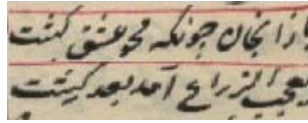 باز آنجان چونکه محو عشق گشت
یعجب الزراع آمد بعد کشت